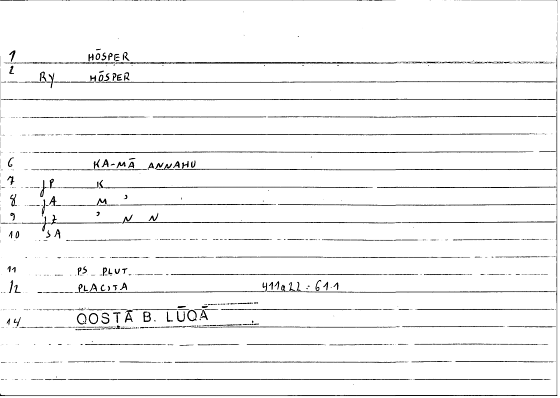 1 HŌSPER
2 RY HŌSPER
6 KA-MĀ ANNAHU
7 JP K
8 JA M ʾ
9 JZ ʾ N N
10 SA
11 PS PLUT.
12 PLACITA 411a22 = 61.1
14 QOSṬĀ B. LŪQĀ